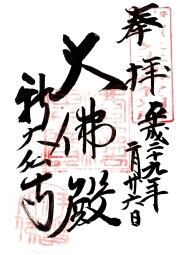 奉拝
平成二十九年
二月廿六日
大佛殿
新大仏寺